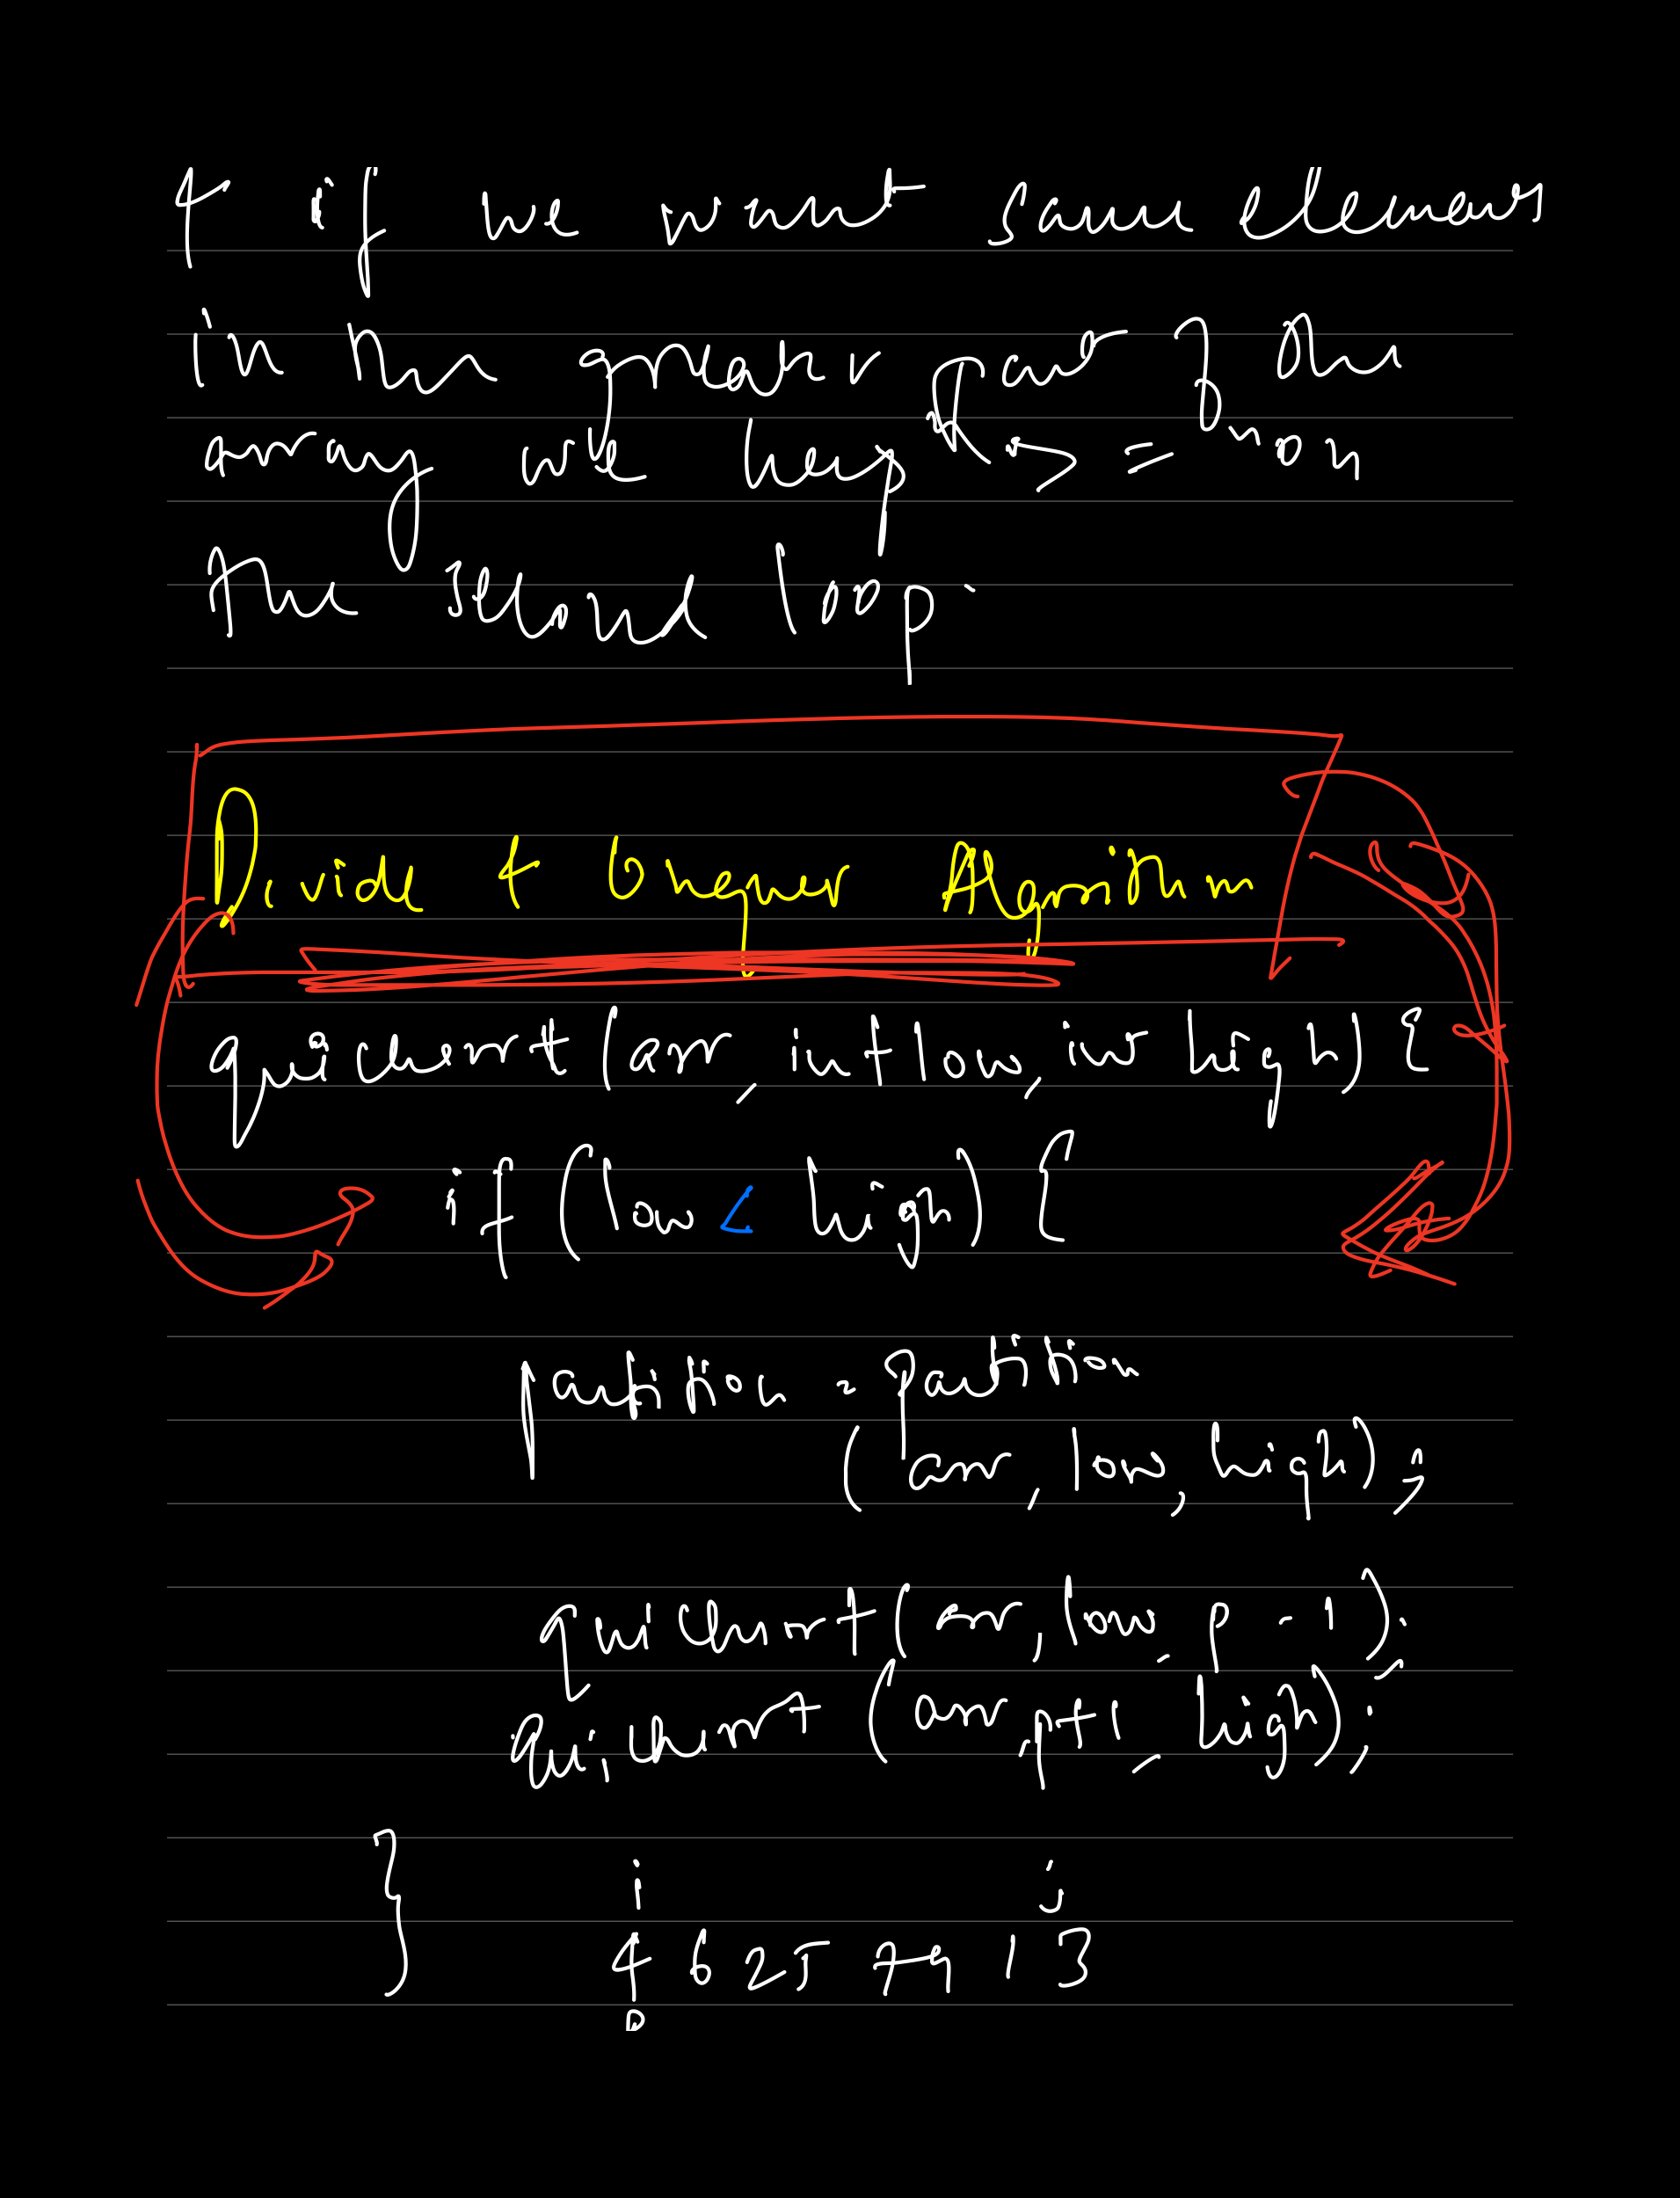 & if we want same elements
in the greater part of the
array we keep ">=" on
the second loop.
Divide & Conquer Algorithm
quicksort (arr, int low, int high) {
if (low < high) {
partition = partition
(arr, low, high);
quicksort (arr, low, p-1);
quicksort (arr, p+1, high);
i j
} 4 6 2 5 7 9 1 3